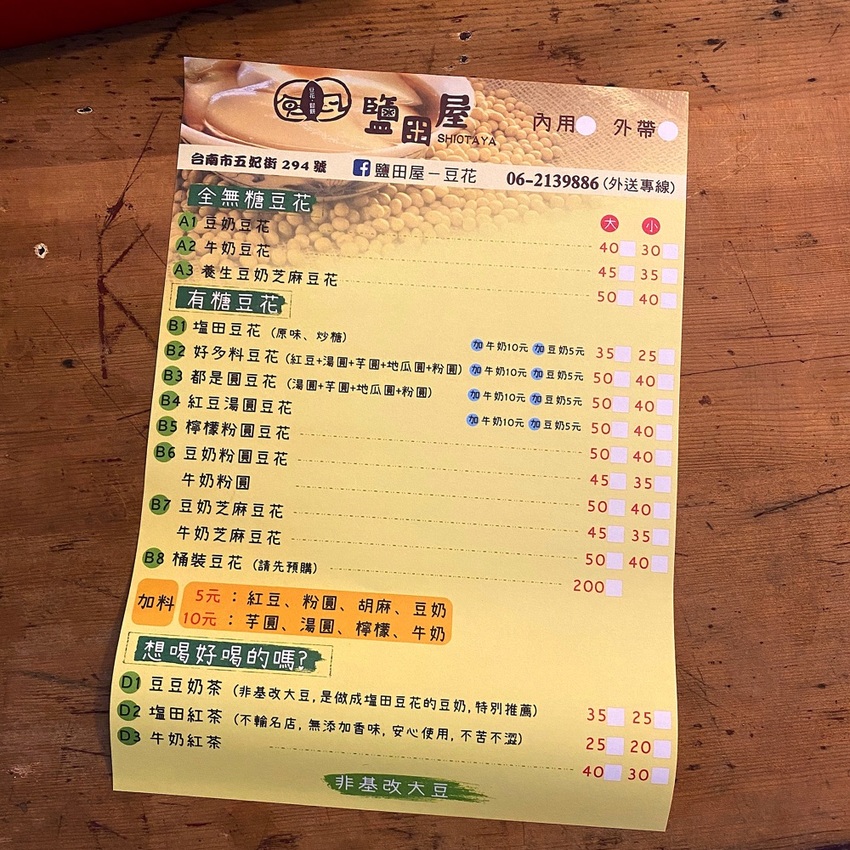 豆花·鬆餅
鹽田屋
SHIOTAYA
內用 外帶
台南市五妃街 294 號 鹽田屋－豆花 06-2139886 (外送專線)
全無糖豆花 大 小
A1 豆奶豆花 40 30
A2 牛奶豆花 45 35
A3 養生豆奶芝麻豆花 50 40
有糖豆花
B1 塩田豆花 (原味、炒糖) 加牛奶10元 加豆奶5元 35 25
B2 好多料豆花 (紅豆+湯圓+芋圓+地瓜圓+粉圓) 加牛奶10元 加豆奶5元 50 40
B3 都是圓豆花 (湯圓+芋圓+地瓜圓+粉圓) 加牛奶10元 加豆奶5元 50 40
B4 紅豆湯圓豆花 加牛奶10元 加豆奶5元 50 40
B5 檸檬粉圓豆花 50 40
B6 豆奶粉圓豆花 45 35
牛奶粉圓 50 40
B7 豆奶芝麻豆花 45 35
牛奶芝麻豆花 50 40
B8 桶裝豆花 (請先預購) 200
加料 5元：紅豆、粉圓、胡麻、豆奶
10元：芋圓、湯圓、檸檬、牛奶
想喝好喝的嗎?
D1 豆豆奶茶 (非基改大豆,是做成塩田豆花的豆奶,特別推薦) 35 25
D2 塩田紅茶 (不輸名店,無添加香味,安心使用,不苦不澀) 25 20
D3 牛奶紅茶 40 30
非基改大豆